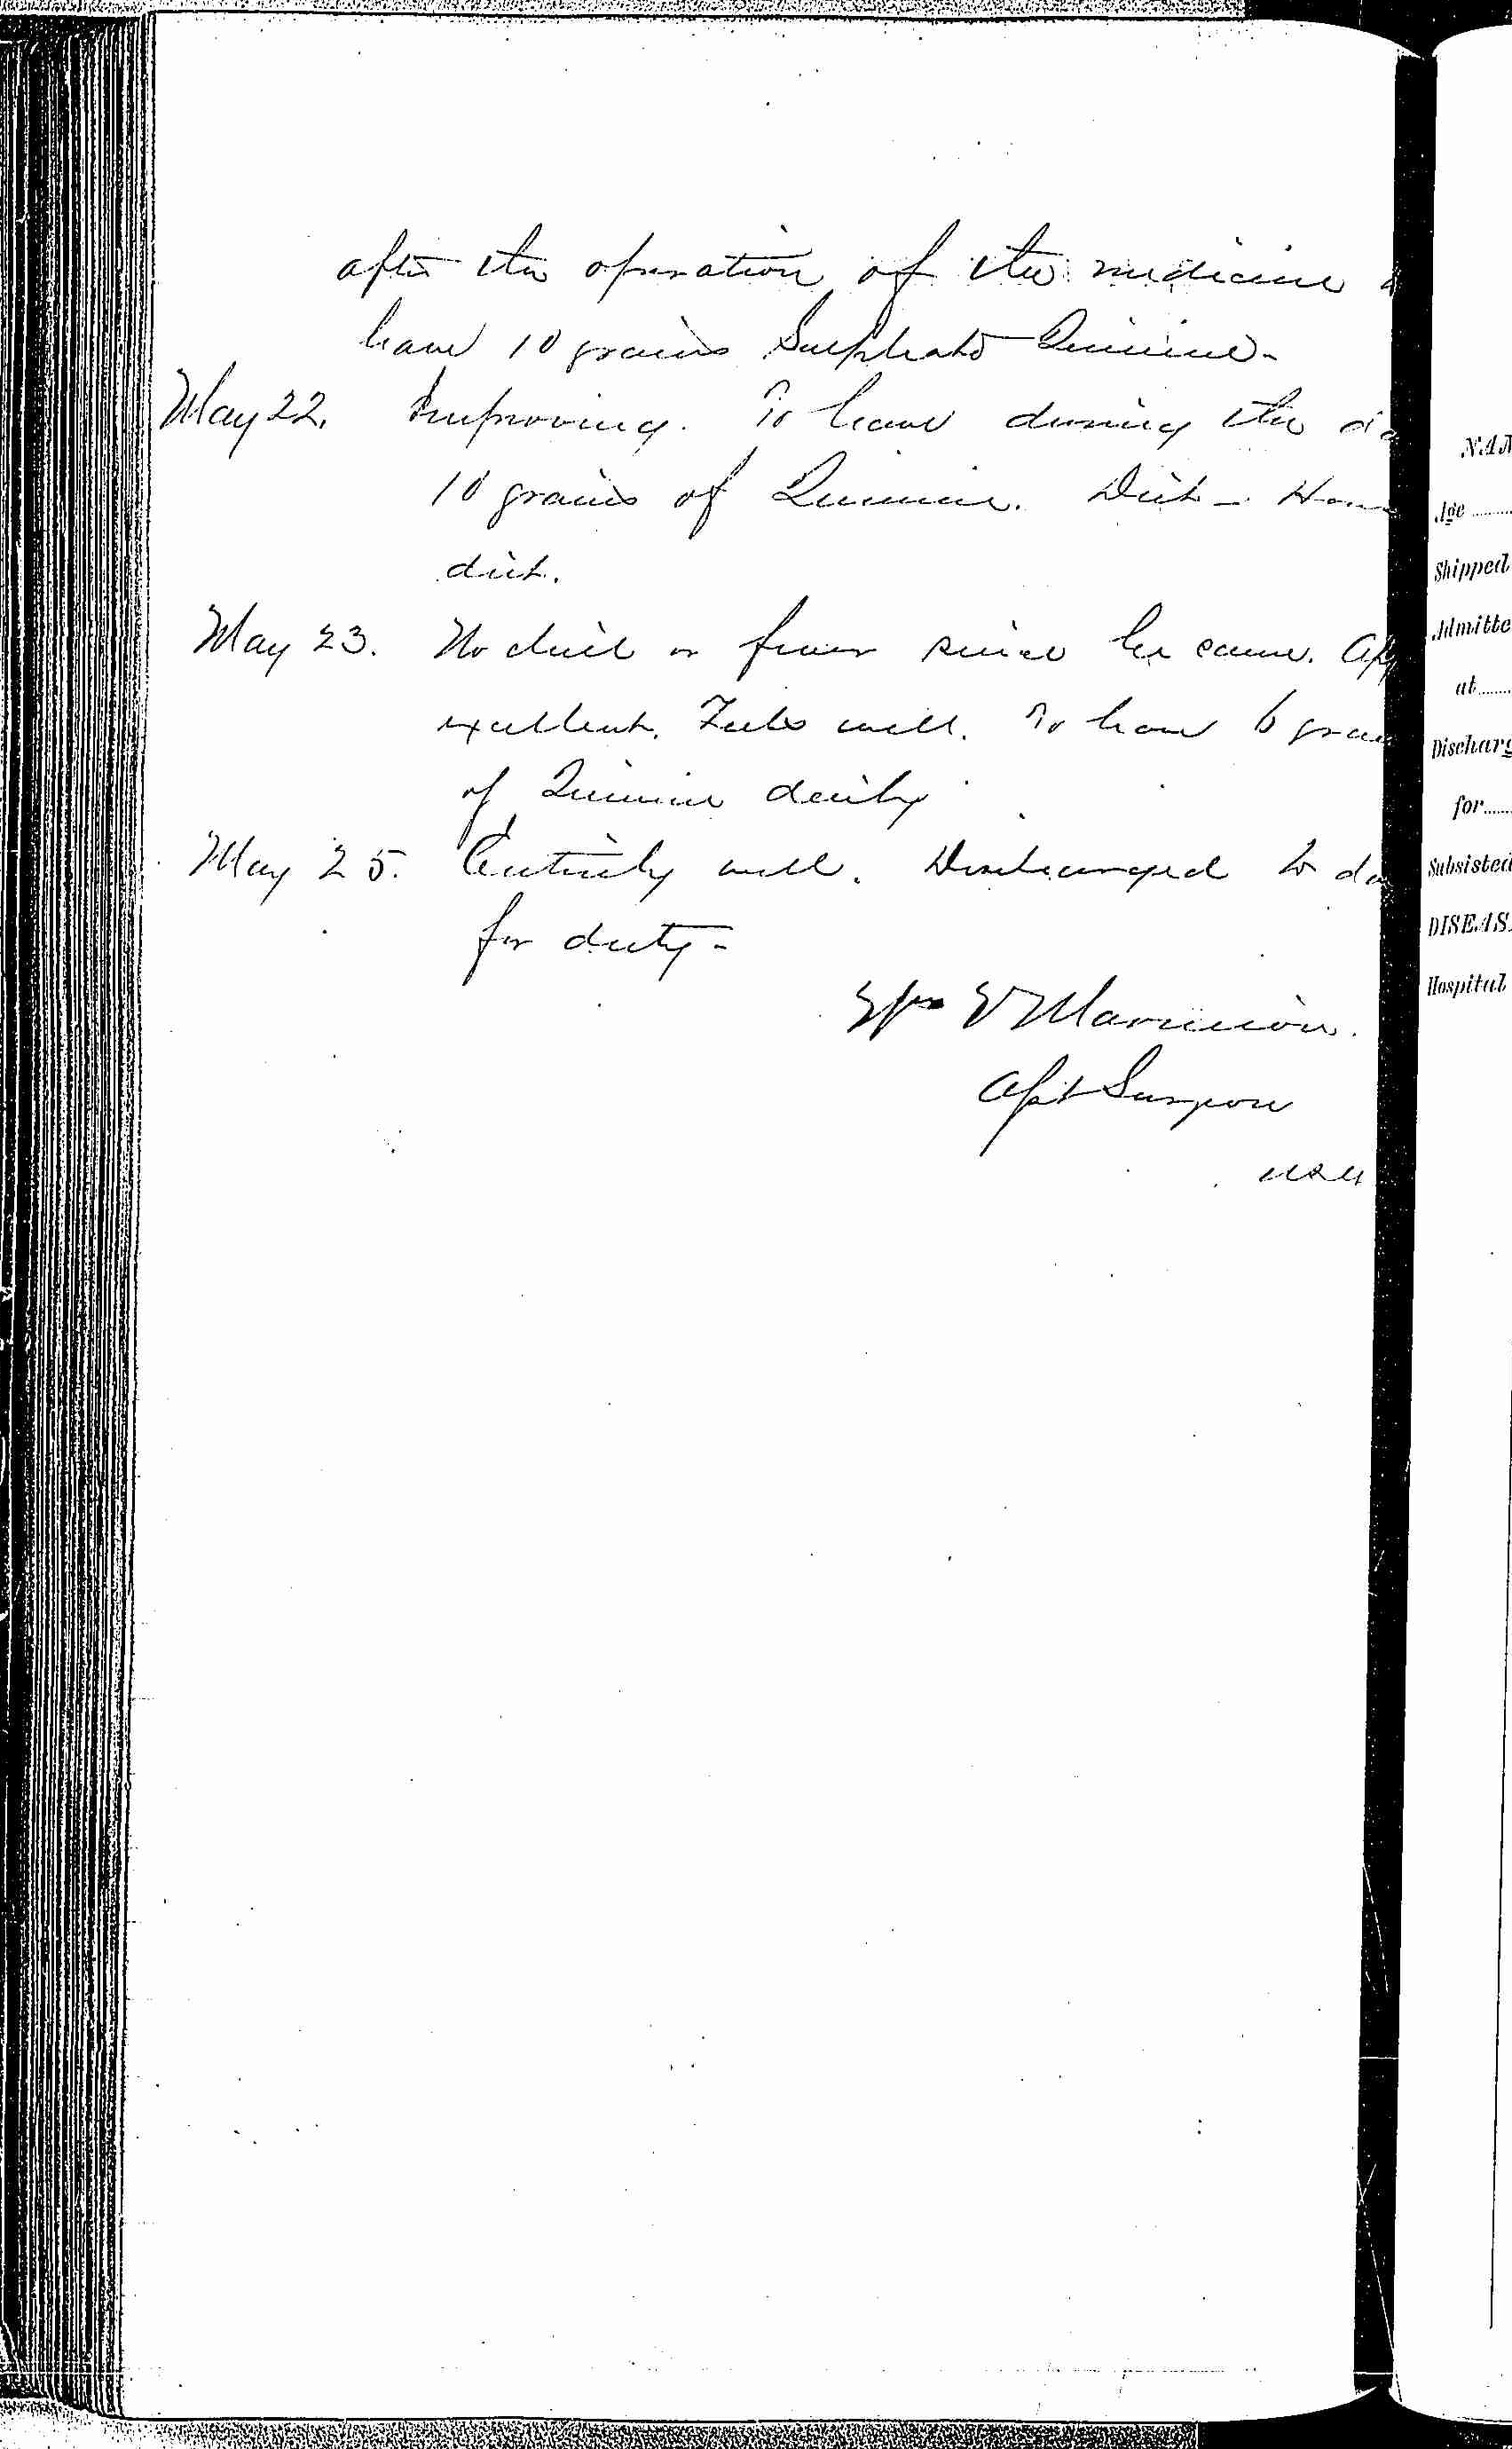 after the operation of the medicine
have 10 grains Sulphate Quinine-
May 22. Improving. To have during the da
10 grains of Quinine. Diet -
diet.
May 23. No chill or fever since he came. Ap
excellent. Feels well. To have 6 grai
of Quinine daily
May 25. Entirely well. Discharged to da
for duty-
Marmion.
Asst Surgeon
USN
NAM
Age
Shipped
Admitte
at
Discharg
for
Subsisted
DISEAS
Hospital